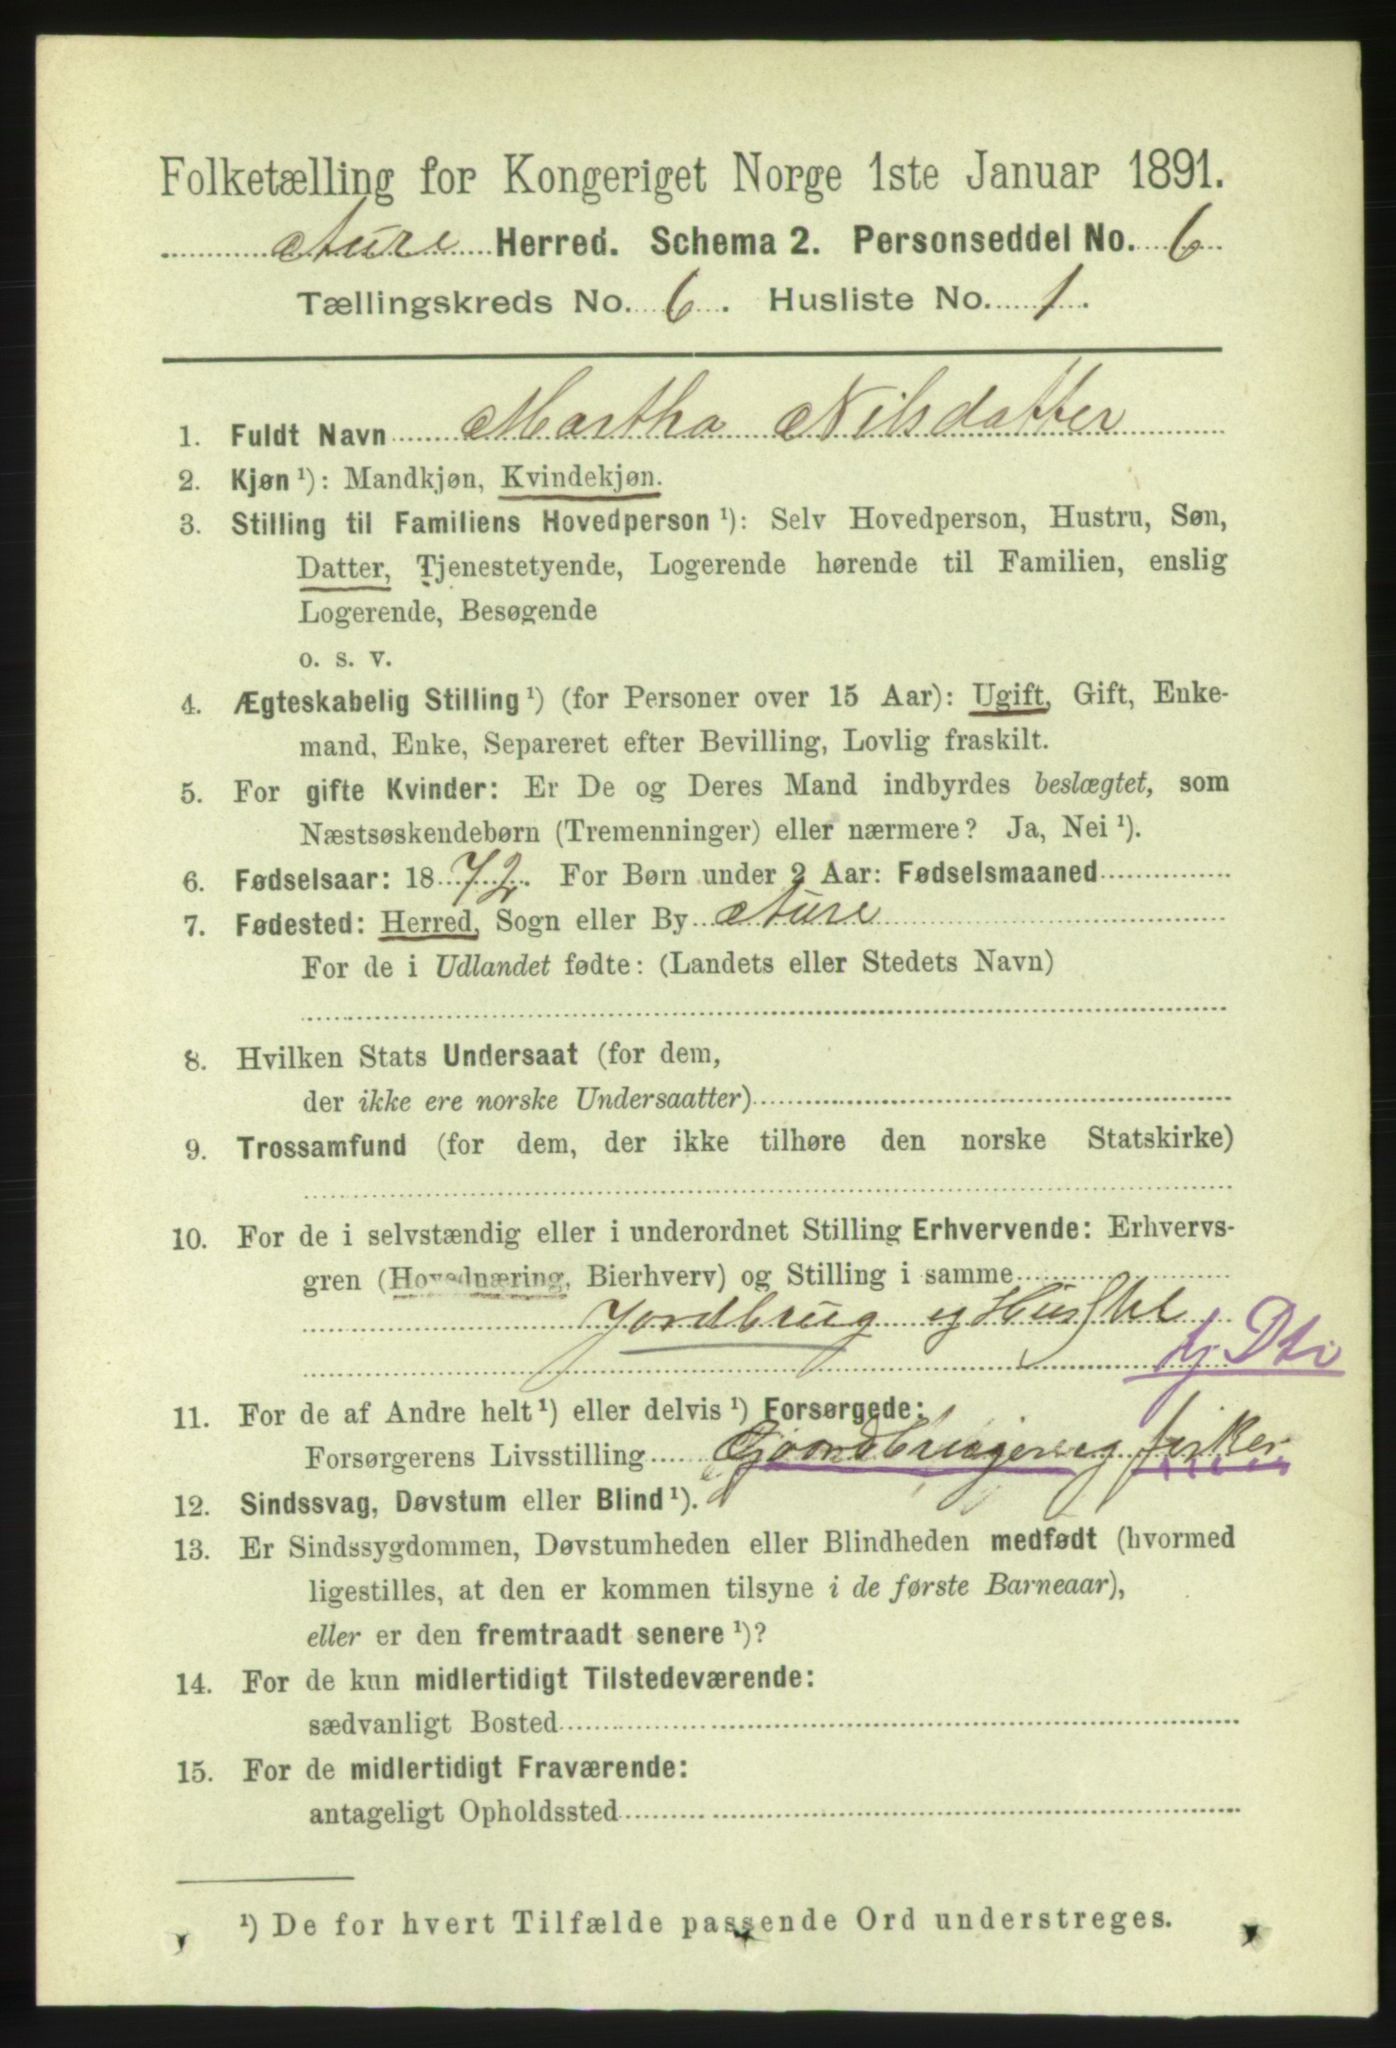 Folketælling for Kongeriget Norge 1ste Januar 1891.
Aure Herred. Schema 2. Personseddel No. 6
Tællingskreds No. 6. Husliste No. 1.
1. Fuldt Navn Martha Nilsdatter
2. Kjøn ¹): Mandkjøn, Kvindekjøn.
3. Stilling til Familiens Hovedperson ¹): Selv Hovedperson, Hustru, Søn,
Datter, Tjenestetyende, Logerende hørende til Familien, enslig
Logerende, Besøgende
o. s. v.
4. Ægteskabelig Stilling ¹) (for Personer over 15 Aar): Ugift, Gift, Enke-
mand, Enke, Separeret efter Bevilling, Lovlig fraskilt.
5. For gifte Kvinder: Er De og Deres Mand indbyrdes beslægtet, som
Næstsøskendebørn (Tremenninger) eller nærmere? Ja, Nei ¹).
6. Fødselsaar: 1872. For Børn under 2 Aar: Fødselsmaaned
7. Fødested: Herred, Sogn eller By Aure
For de i Udlandet fødte: (Landets eller Stedets Navn)
8. Hvilken Stats Undersaat (for dem,
der ikke ere norske Undersaatter)
9. Trossamfund (for dem, der ikke tilhøre den norske Statskirke)
10. For de i selvstændig eller i underordnet Stilling Erhvervende: Erhvervs-
gren (Hovednæring, Bierhverv) og Stilling i samme
Jordbrug og Husstel
tj Dtr
11. For de af Andre helt ¹) eller delvis ¹) Forsørgede:
Forsørgerens Livsstilling Gaardbruger og fisker
12. Sindssvag, Døvstum eller Blind ¹).
13. Er Sindssygdommen, Døvstumheden eller Blindheden medfødt (hvormed
ligestilles, at den er kommen tilsyne i de første Barneaar),
eller er den fremtraadt senere ¹)?
14. For de kun midlertidigt Tilstedeværende:
sædvanligt Bosted
15. For de midlertidigt Fraværende:
antageligt Opholdssted
¹) De for hvert Tilfælde passende Ord understreges.